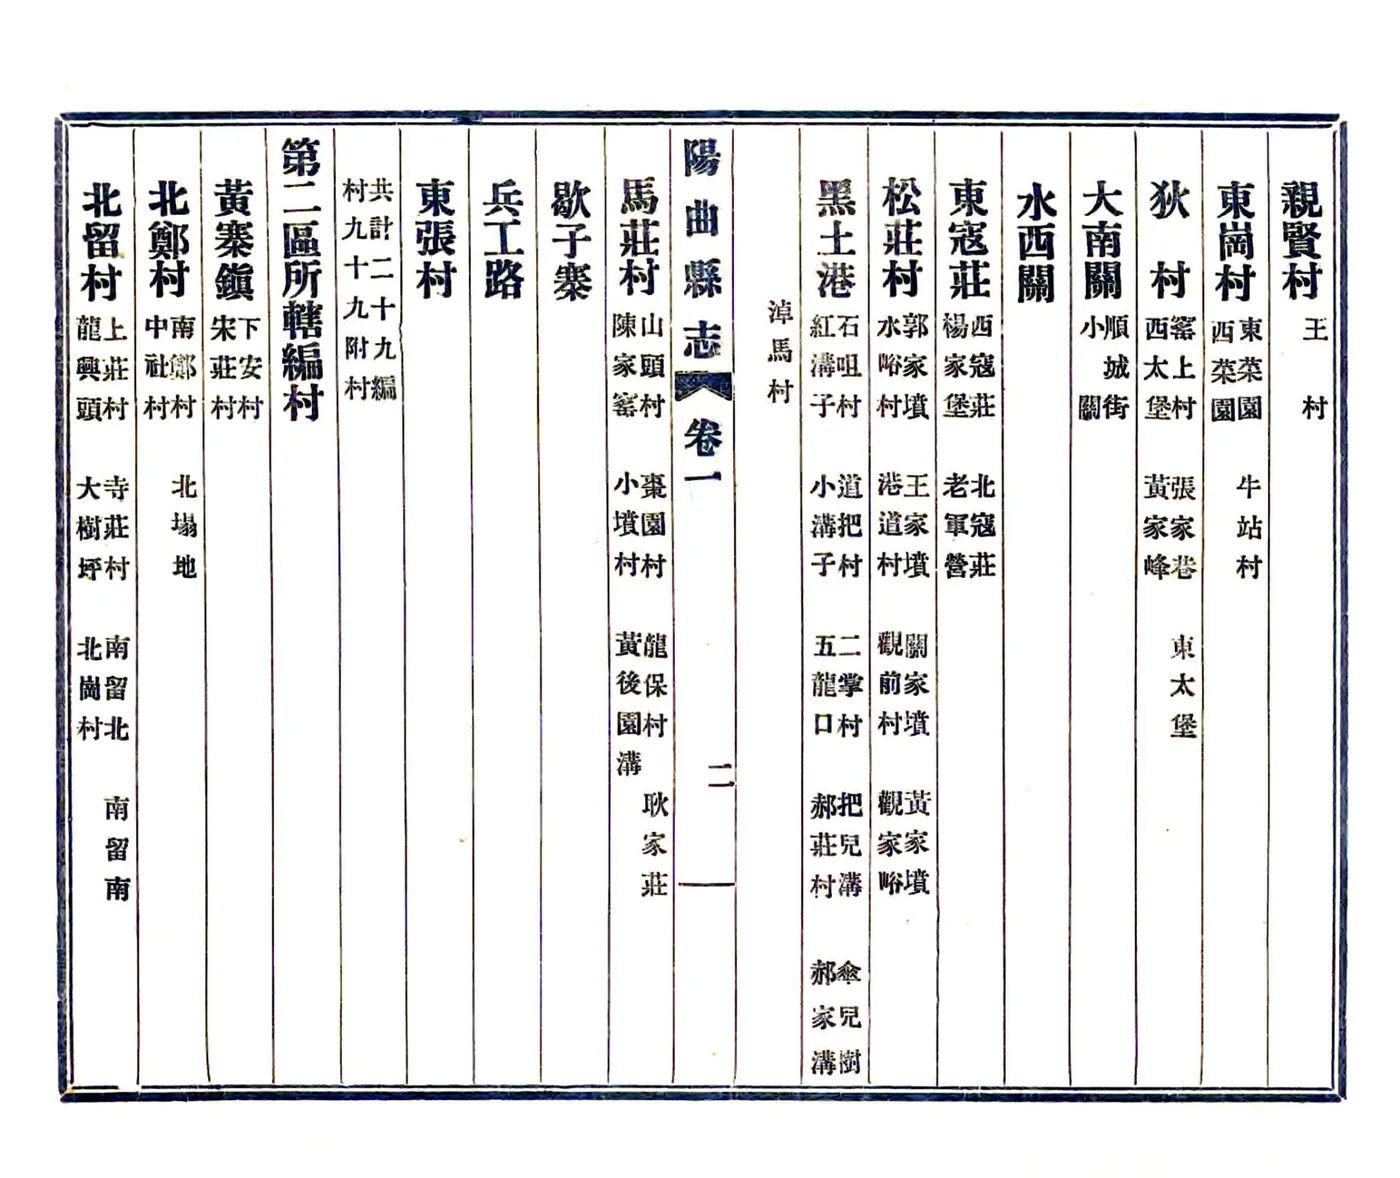 親賢村 王村
東崗村 東菜園 西菜園 牛站村
狄村 窰上村 西太堡 張家巷 黃家峰 東太堡
大南關 順城街 小關
水西關
東寇莊 西寇莊 楊家堡 北寇莊 老軍營
松莊村 郭家墳 水峪村 王家墳 港道村 關家墳 觀前村 黃家墳 觀家峪
黑土港 石咀村 紅溝子 道把村 小溝子 二掌村 五龍口 把兒溝 郝莊村 傘兒樹 郝家溝
淖馬村
陽曲縣志 卷一 二
馬莊村 山頭村 陳家窰 棗園村 小墳村 龍保村 黃後園溝 耿家莊
歇子寨
兵工路
東張村
共計二十九編村九十九附村
第二區所轄編村
黃寨鎭 下安村 宋莊村
北鄭村 南鄭村 中社村 北塌地
北留村 上莊村 龍興頭 寺莊村 大樹坪 南留北 北崗村 南留南